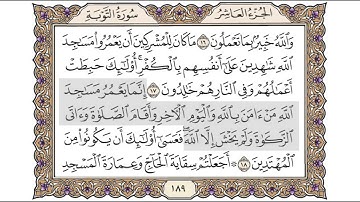 الجزء العاشر
سورة التوبة
وَاللَّهُ خَبِيرٌ بِمَا تَعْمَلُونَ ١٦ مَا كَانَ لِلْمُشْرِكِينَ أَن يَعْمُرُوا مَسَاجِدَ
اللَّهِ شَاهِدِينَ عَلَىٰ أَنفُسِهِم بِالْكُفْرِ أُولَٰئِكَ حَبِطَتْ
أَعْمَالُهُمْ وَفِي النَّارِ هُمْ خَالِدُونَ ١٧ إِنَّمَا يَعْمُرُ مَسَاجِدَ
اللَّهِ مَنْ ءَامَنَ بِاللَّهِ وَالْيَوْمِ الْآخِرِ وَأَقَامَ الصَّلَوٰةَ وَءَاتَى
الزَّكَوٰةَ وَلَمْ يَخْشَ إِلَّا اللَّهَ فَعَسَىٰ أُولَٰئِكَ أَن يَكُونُوا مِنَ
الْمُهْتَدِينَ ١٨ ۞ أَجَعَلْتُمْ سِقَايَةَ الْحَاجِّ وَعِمَارَةَ الْمَسْجِدِ
١٨٩